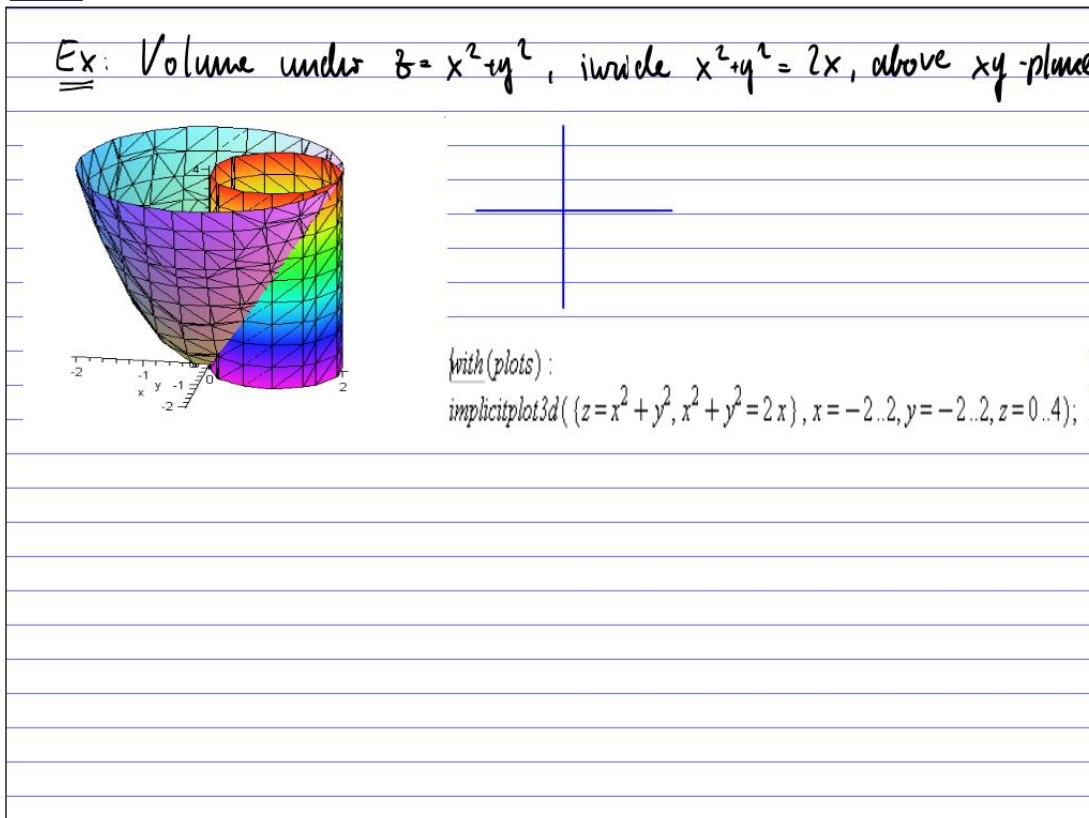 Ex: Volume under z = x²+y², inside x²+y² = 2x, above xy-plane
4
-2
-1
0
2
x
y
-1
-2
with(plots) :
implicitplot3d({z = x² + y², x² + y² = 2 x}, x = −2..2, y = −2..2, z = 0..4);